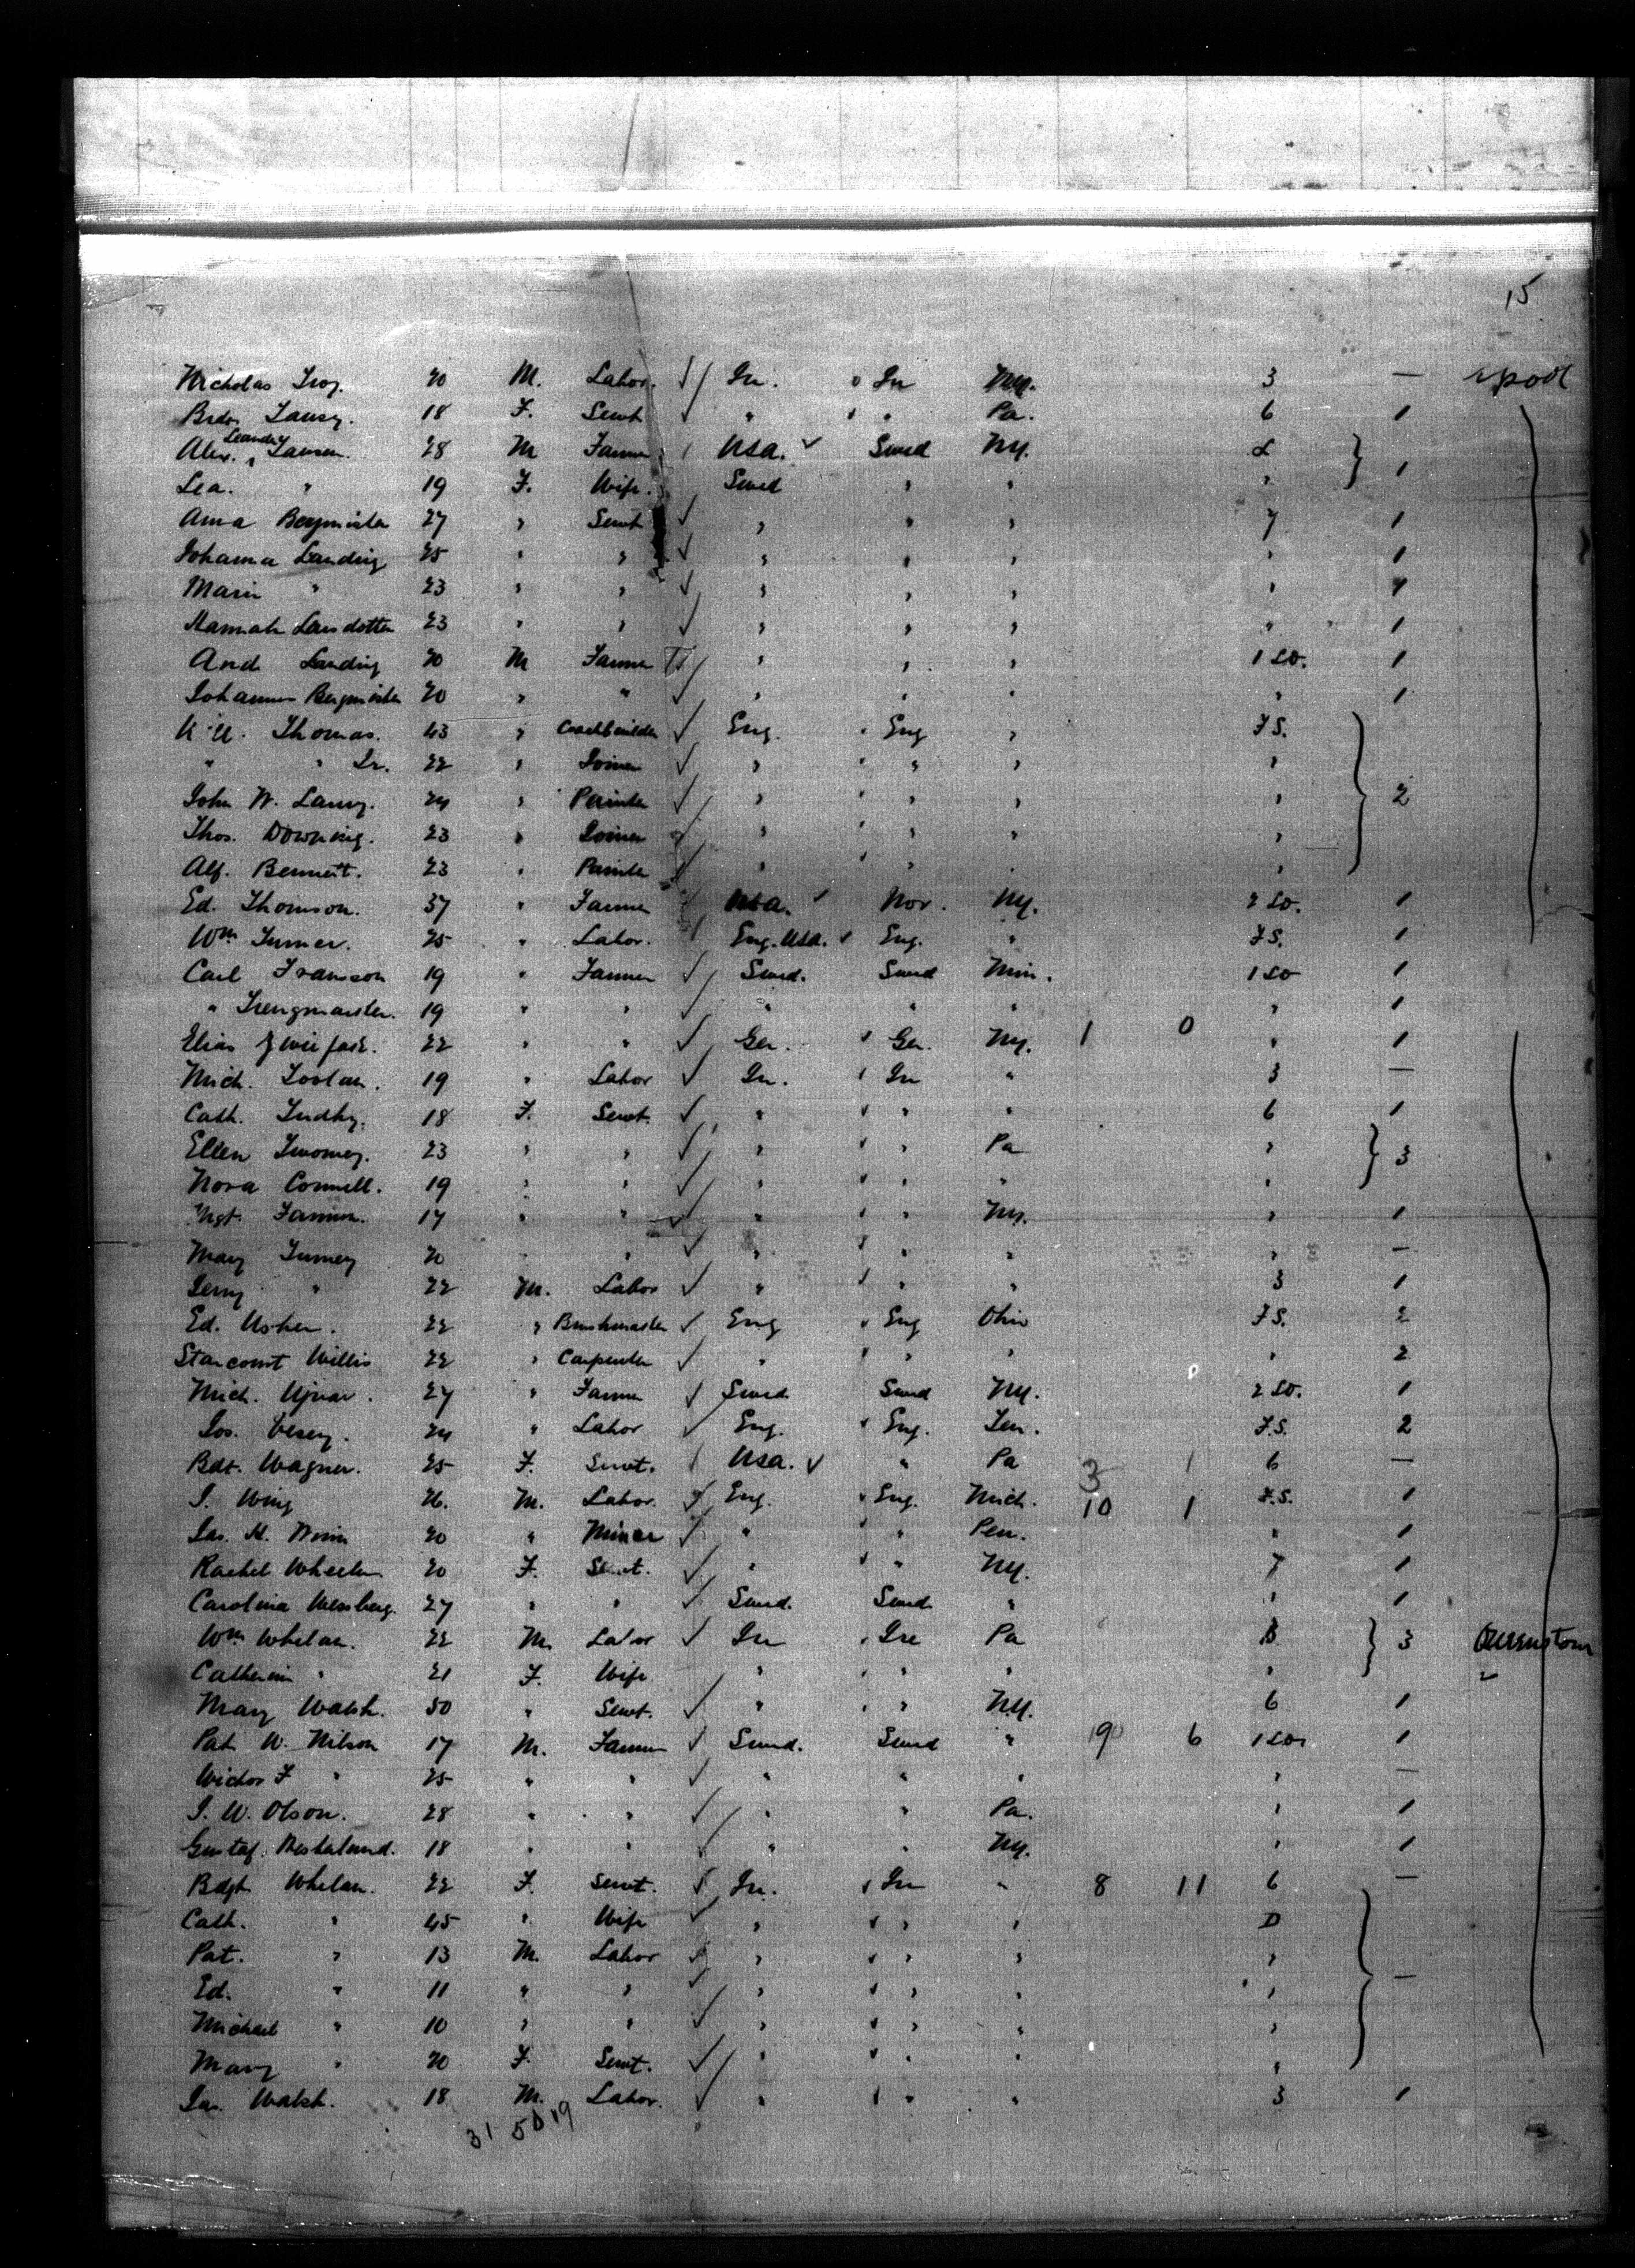 15
Nicholas Troy. 20 M. Labor. Ir. Ir NY. 3 — L'pool
Brdt. Tansy. 18 F. Servt " " Pa. 6 1
Alex. Leander Tamsen. 28 M Farmer USA. Swed NY. 2 1
Lea. " 19 F. Wife. Swed " " "
Anna Bergmister 27 " Servt " " " 7 1
Johanna Landing 25 " " " " " " 1
Marie " 23 " " " " " " 1
Hannah Larsdotter 23 " " " " " " 1
And Landing 20 M Farmer " " " 1 SO. 1
Johannes Bergmister 20 " " " " " " 1
W. Thomas. 43 " Coachbuilder Eng. Eng " F S.
" " Jr. 22 " Joiner " " " "
John W. Lansy. 24 " Painter " " " " 2
Thos. Downing. 23 " Joiner " " " "
Alf. Bennett. 23 " Painter " " " "
Ed. Thomson. 37 " Farmer USA. Nor. NY. 2 SO. 1
Wm Turner. 25 " Labor. Eng. USA. Eng. " F S. 1
Carl Fransson 19 " Farmer Swed. Swed Min. 1 SO 1
" Trengmaister. 19 " " " " " " 1
Elias 22 " " Ger. Ger. NY. 1 0 " 1
Mich. Toolan. 19 " Labor Ir. Ir " 3 —
Cath. 18 F. Servt. " " " 6 1
Ellen Twomey. 23 " " " " Pa " 3
Nora Connell. 19 " " " " " "
Mgt. 17 " " " " NY. " 1
Mary Tumey 20 " " " " " " —
Jerry " 22 M. Labor " " " 3 1
Ed. Usher. 22 " Brushmaker Eng Eng Ohio F S. 2
Stancomt Willis 22 " Carpenter " " " " 2
Mich. Ujvar. 27 " Farmer Swed Swed NY. 2 SO. 1
Jos. Vesey. 24 " Labor Eng. Eng. Ten. F.S. 2
Bdt. Wagner. 25 F. Servt. USA. " Pa 3 1 6 —
J. Wing 26. M. Labor. Eng. Eng. Mich. 10 1 F.S. 1
Jas. H. 20 " Miner " " Pen. " 1
Rachel Wheeler 20 F. Servt. " " NY. 7 1
Carolina Wessberg. 27 " " Swed. Swed. " " 1
Wm Whelan. 22 M. Labor Ir Ire Pa 3 Queenstown
Catherine " 21 F. Wife " " " "
Mary Walsh. 50 " Servt. " " NY. 6 1
Pat W. Nilson 17 M. Farmer Swed. Swed " 19 6 1 SO. 1
Wictor F " 25 " " " " " " —
J. W. Olson. 28 " " " " Pa. " 1
Gustaf. Westerlund. 18 " " " " NY. " 1
Bdgt Whelan. 22 F. Servt. Ir. Ir " 8 11 6 —
Cath. " 45 " Wife " " " D
Pat. " 13 M. Labor " " " "
Ed. " 11 " " " " " " —
Michael " 10 " " " " " "
Mary " 20 F. Servt. " " " "
Jas. Walsh. 18 M. Labor. " " " 3 1
31 50 19